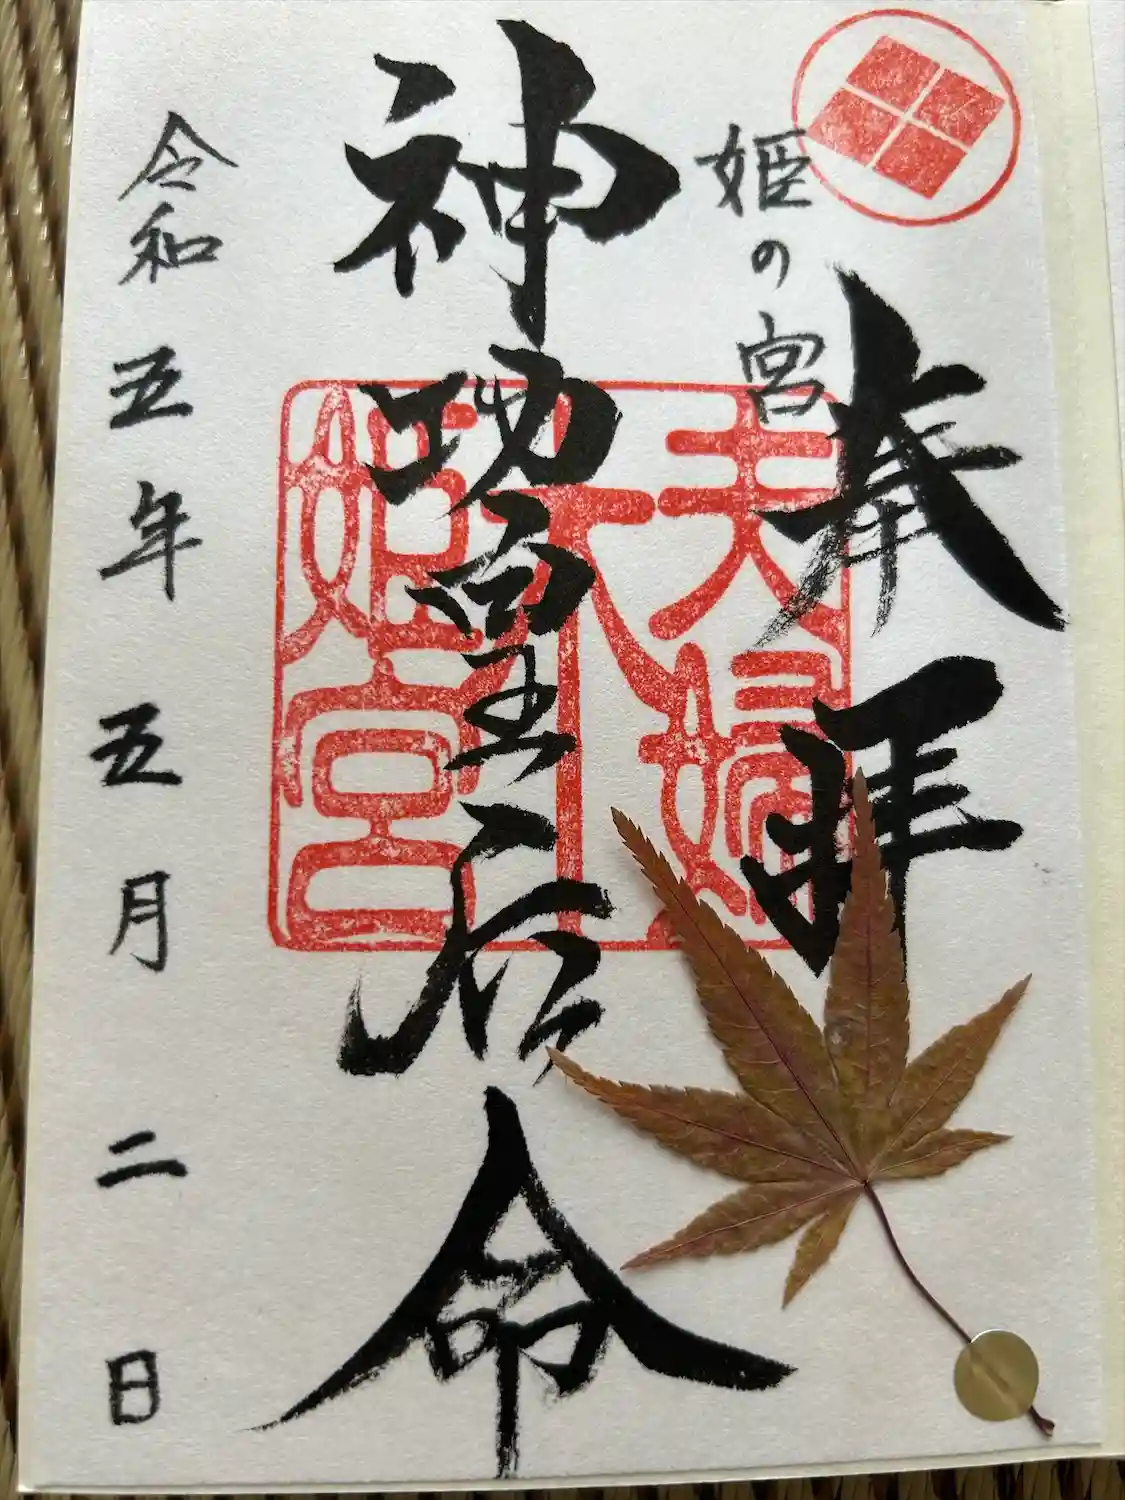 奉拝
姫の宮
夫婦
木
姫宮
神功皇后命
令和五年五月二日